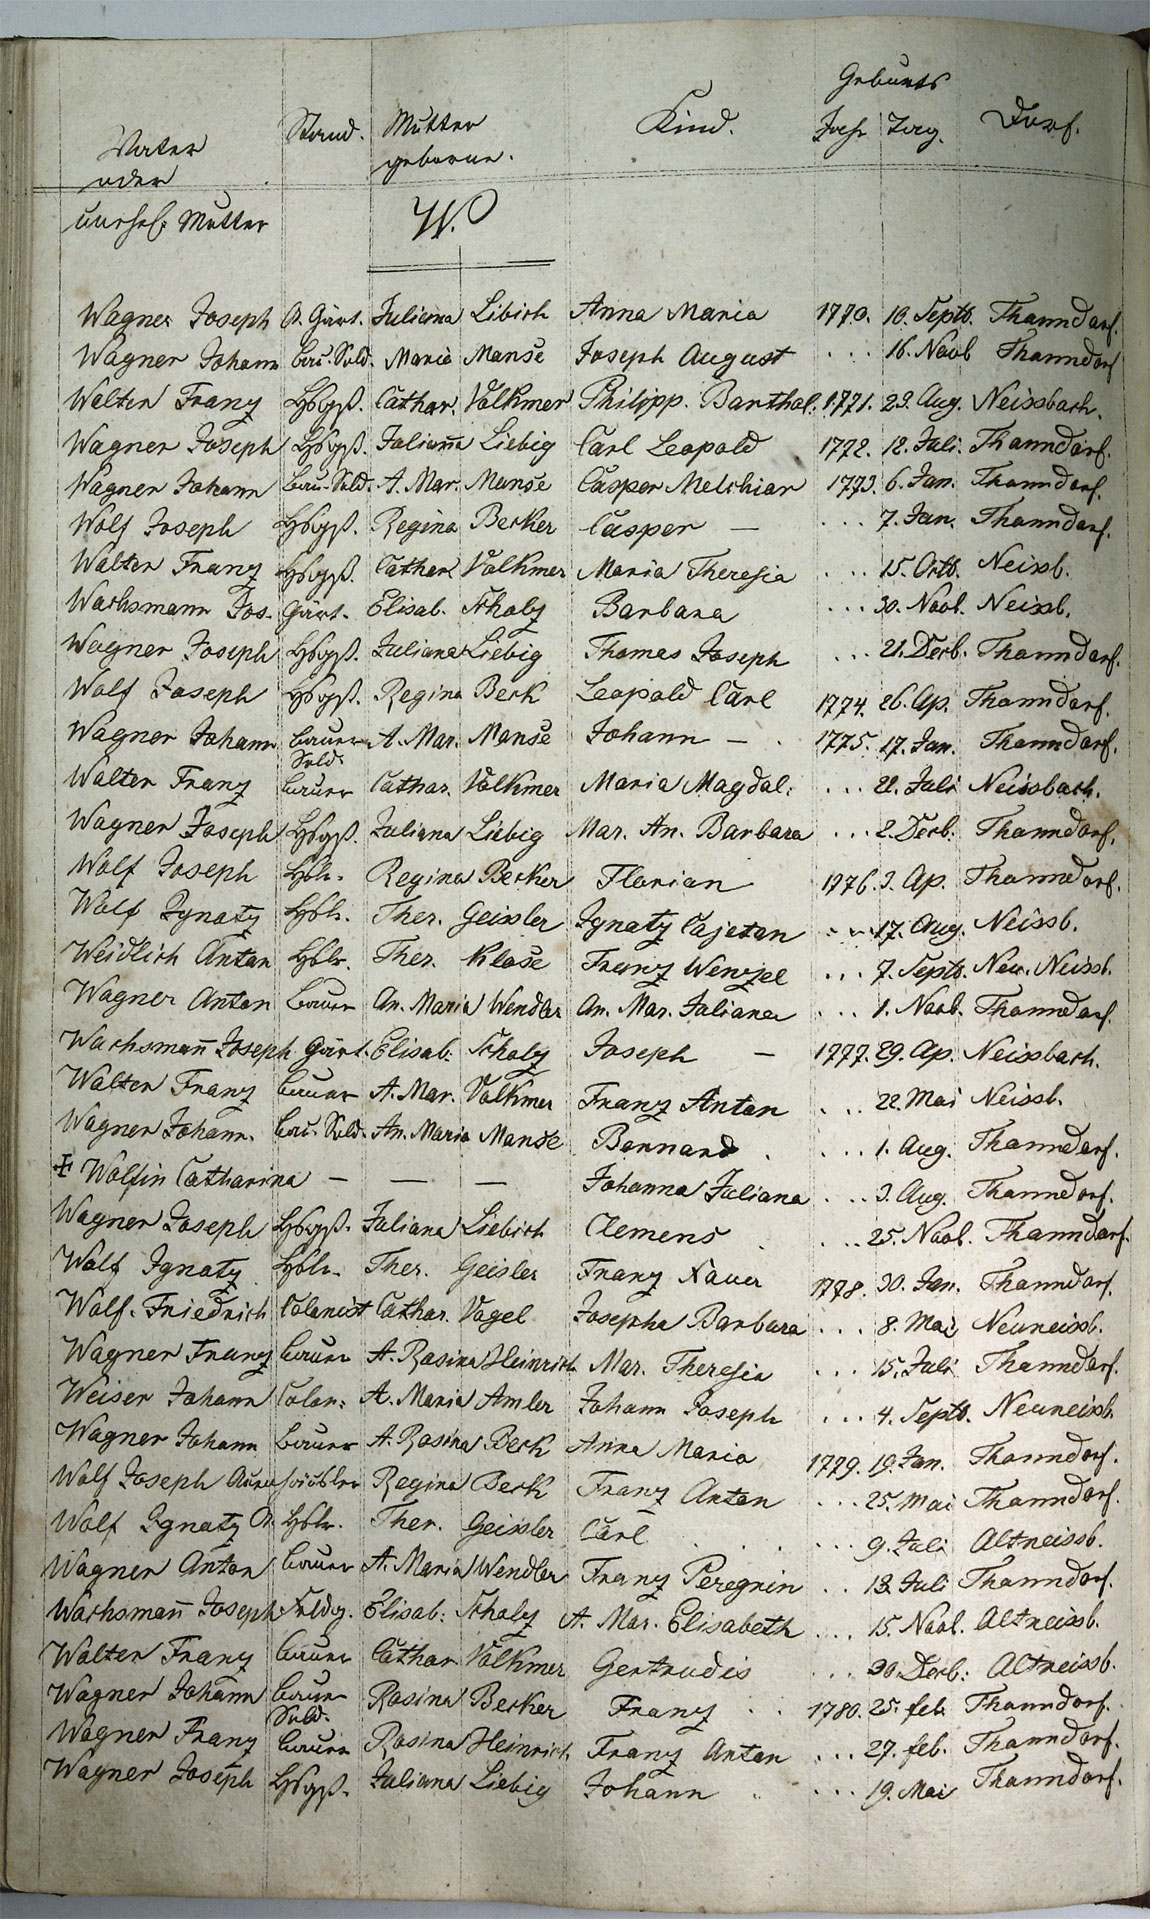 Geburts
Vater Stand. Mutter Kind. Jahr Tag. Dorf.
oder geborne.
unehel: Mutter W.
Wagner Joseph A. Gärt. Juliana Libich Anna Maria 1770. 10. Septb. Thanndorf.
Wagner Johann Bau. Sold. Maria Manse Joseph August ... 16. Novb Thanndorf
Walter Franz Hbgß. Cathar. Volkmer Philipp. Barthol. 1771. 23. Aug. Neissbach.
Wagner Joseph Hbgß. Julianna Liebig Carl Leopold 1772. 12. Juli. Thanndorf.
Wagner Johann Bau. Sold. A. Mar. Manse Casper Melchior 1773. 6. Jan. Thanndorf.
Wolf Joseph Hbgß. Regina Becker Casper — ... 7. Jan. Thanndorf.
Walter Franz Hbgß. Cathar Volkmer Maria Theresia ... 15. Octb. Neissb.
Wachsmann Jos. Gärt. Elisab. Scholz Barbara ... 30. Novb. Neissb.
Wagner Joseph Hbgß. Juliana Liebig Thomas Joseph ... 21. Decb. Thanndorf.
Wolf Joseph Hbgß. Regina Beck Leopold Carl 1774. 26. Ap. Thanndorf.
Wagner Johann Bauer A. Mar. Manse Johann — . 1775. 17. Jan. Thanndorf.
Sold.
Walter Franz Bauer Cathar. Volkmer Maria Magdal: ... 22. Juli Neissbach.
Wagner Joseph Hbgß. Juliana Liebig Mar. An. Barbara ... 2. Decb. Thanndorf.
Wolf Joseph Hblr. Regina Becker Florian 1776. 3. Ap. Thanndorf.
Wolf Ignatz Hblr. Ther. Geissler Ignatz Cajetan ... 17. Aug. Neissb.
Weidlich Anton Hblr. Ther. Klose Franz Wenzel ... 7. Septb. Neu. Neissb.
Wagner Anton Bauer An. Maria Wendler An. Mar. Juliana ... 1. Novb. Thanndorf.
Wachsmañ Joseph Gärt. Elisab. Scholz Joseph — 1777. 29. Ap. Neissbach.
Walter Franz Bauer A. Mar. Volkmer Franz Anton ... 22. Mai Neissb.
Wagner Johann. Bau. Sold. An. Maria Manse Bernard . ... 1. Aug. Thanndorf.
Wolfin Catharina — — — Johanna Juliana ... 3. Aug. Thanndorf.
Wagner Joseph Hbgß. Juliana Liebich Clemens . ... 25. Novb. Thanndorf.
Wolf Ignatz Hblr. Ther. Geisler Franz Xaver 1778. 30. Jan. Thanndorf.
Wolf. Friedrich Colonist Cathar. Vogel Josepha Barbara ... 8. Mai Neuneissb.
Wagner Franz Bauer A. Rosina Heinrich Mar. Theresia ... 15. Juli Thanndorf.
Weiser Johann Colon: A. Maria Amler Johann Joseph ... 4. Septb. Neuneissb.
Wagner Johann Bauer A. Rosina Beck Anna Maria 1779. 19. Jan. Thanndorf.
Wolf Joseph Auenhäusler Regina Beck Franz Anton ... 25. Mai Thanndorf.
Wolf Ignatz A. Hblr. Ther. Geissler Carl . . . ... 9. Juli Altneissb.
Wagner Anton Bauer A. Maria Wendler Franz Peregrin ... 13. Juli Thanndorf.
Wachsmañ Joseph Feldg. Elisab: Scholz A. Mar. Elisabeth ... 15. Novb. Altneissb.
Walter Franz Bauer Cathar Volkmer Gertrudis ... 30. Decb: Altneissb.
Wagner Johann Bauer Rosina Becker Franz . . 1780. 25. feb. Thanndorf.
Sold.
Wagner Franz Bauer Rosina Heinrich Franz Anton ... 27. feb. Thanndorf.
Wagner Joseph Hbgß. Juliana Liebig Johann . ... 19. Mai Thanndorf.